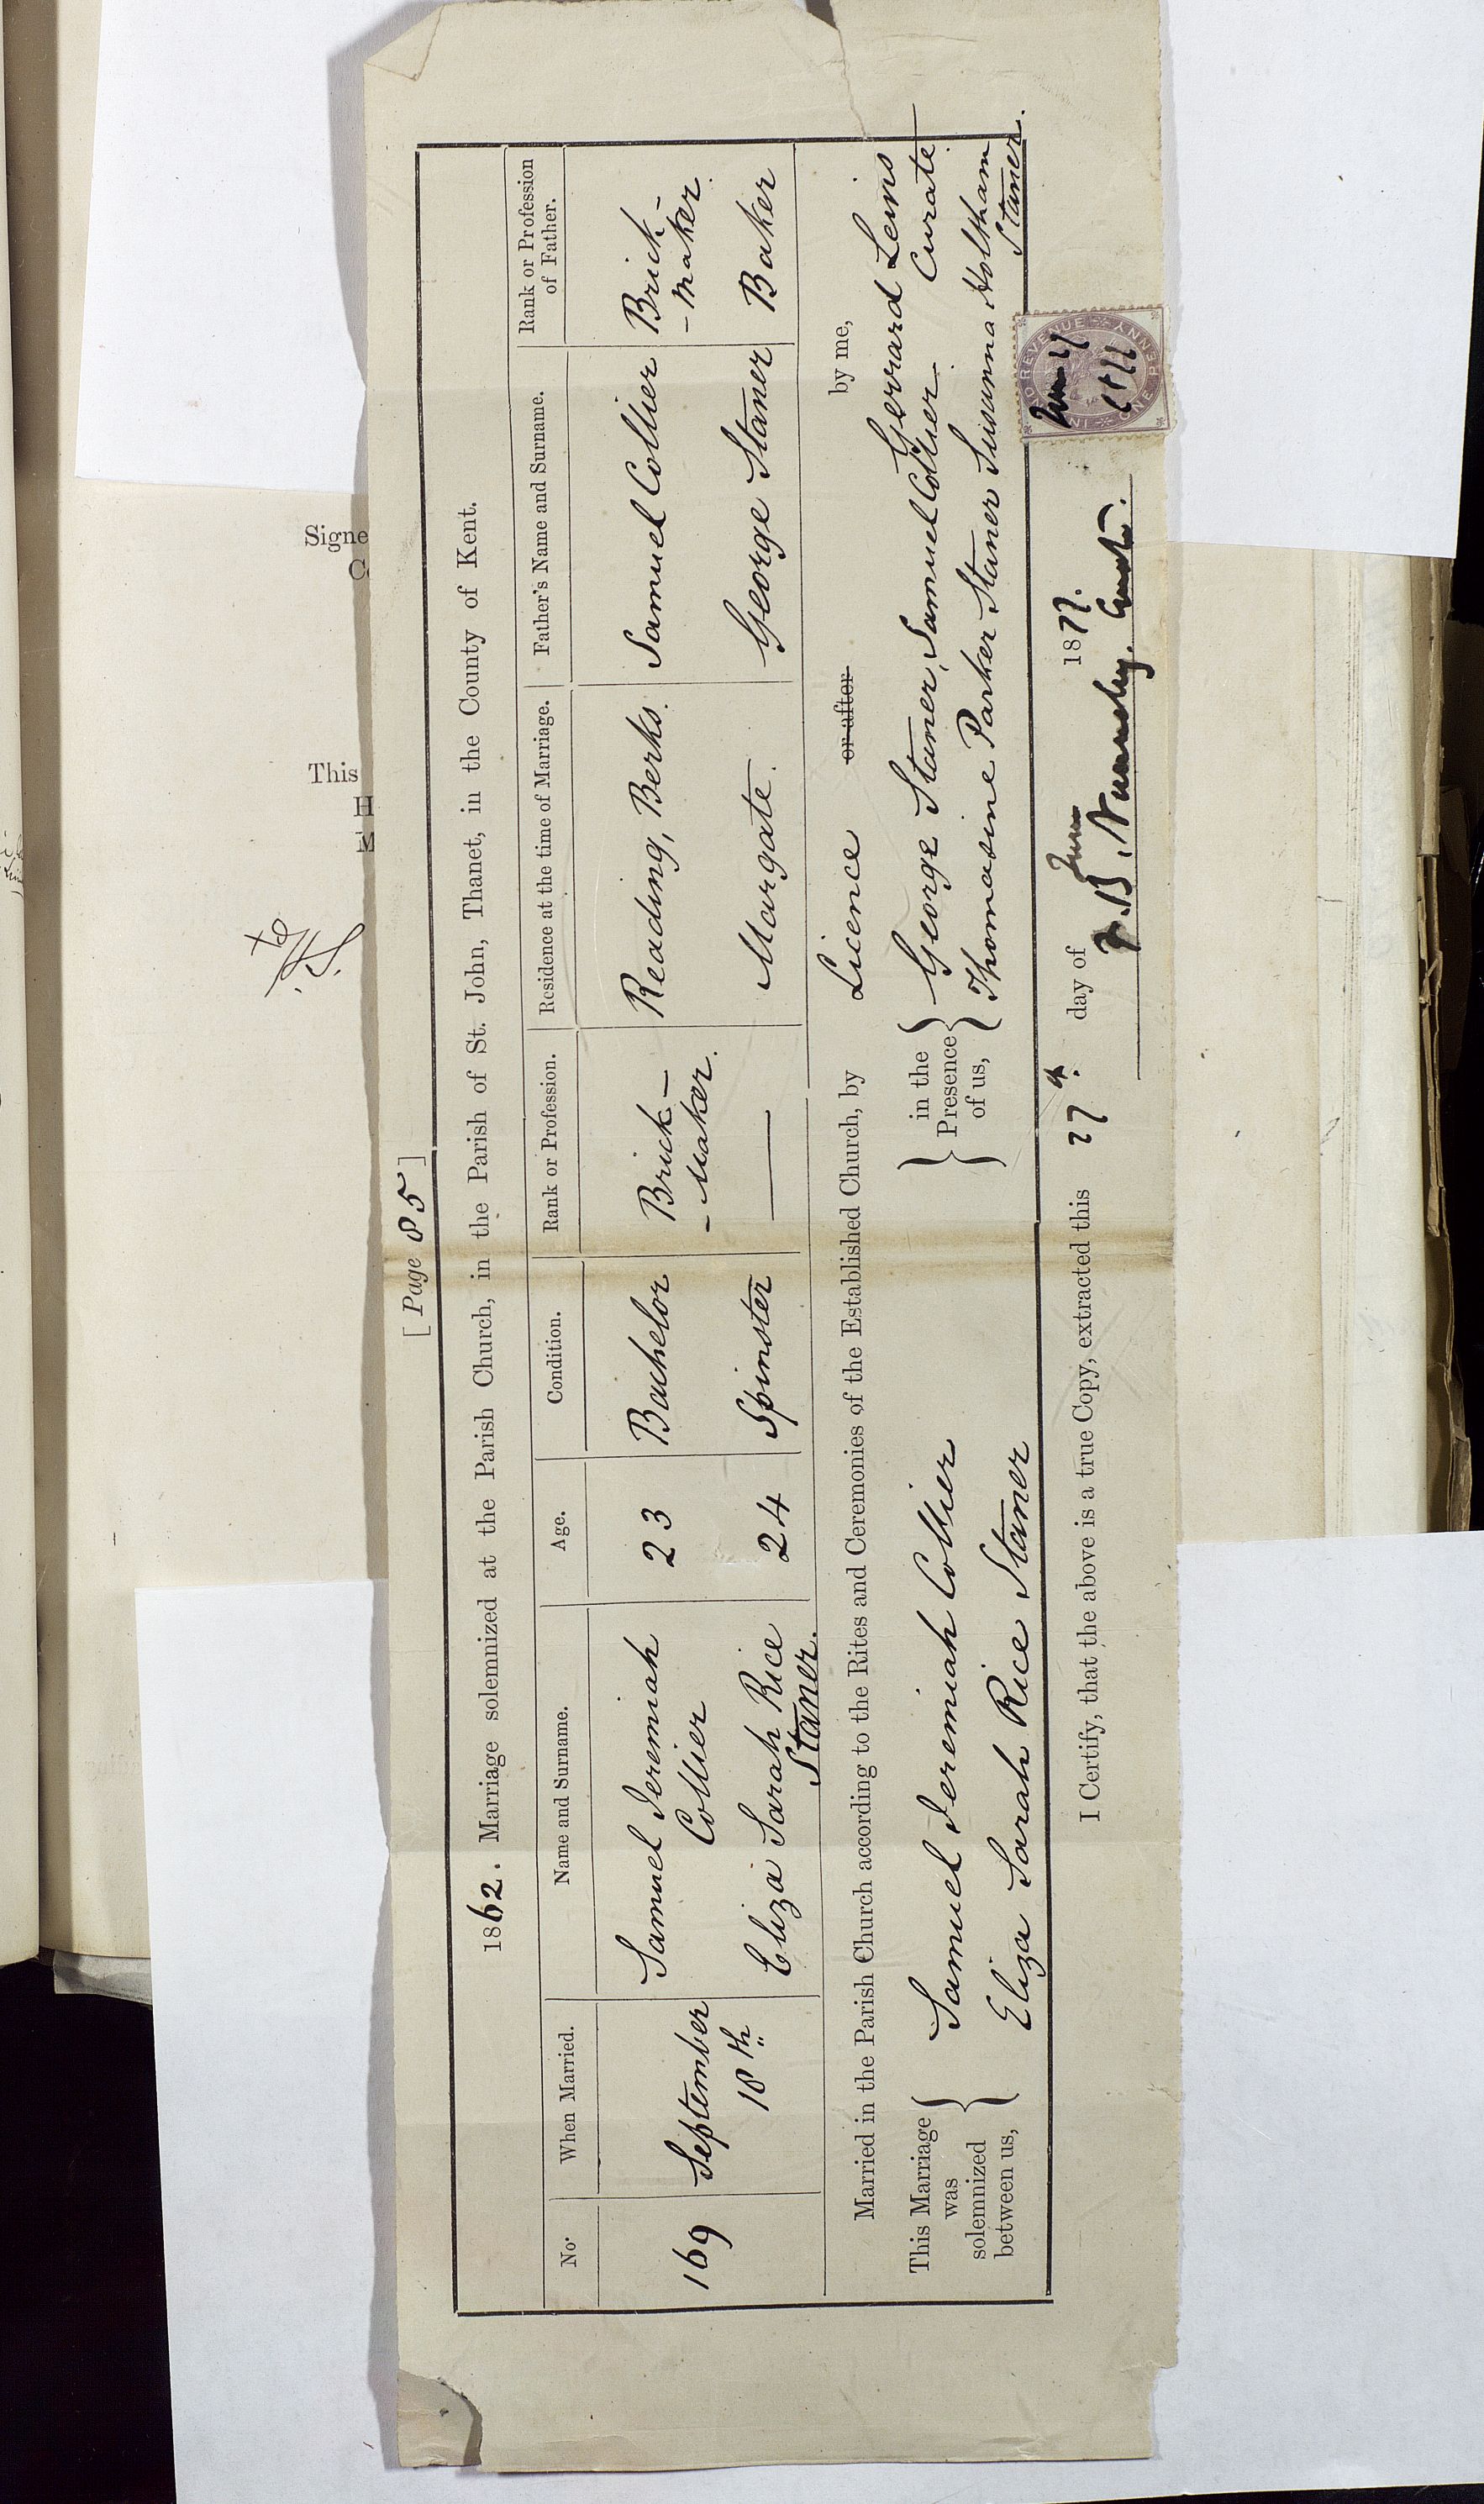 [ Page 85 ]
1862. Marriage solemnized at the Parish Church, in the Parish of St. John, Thanet, in the County of Kent.
No. When Married. Name and Surname. Age. Condition. Rank or Profession. Residence at the time of Marriage. Father's Name and Surname. Rank or Profession of Father.
169 September 18th Samuel Jeremiah Collier 23 Bachelor Brick-
-Maker. Reading, Berks. Samuel Collier Brick-
-Maker.
Eliza Sarah Rice Staner. 24 Spinster — Margate. George Staner Baker
Married in the Parish Church according to the Rites and Ceremonies of the Established Church, by Licence or after by me,
Gerrard Lewis
Curate
This Marriage
was
solemnized
between us,
Samuel Jeremiah Collier
Eliza Sarah Rice Staner
in the
Presence
of us,
George Staner, Samuel Collier.
Thomasine Parker Staner Susanna Holtham
Staner.
I Certify, that the above is a true Copy, extracted this 27th day of June 1877.
INLAND REVENUE
ONE PENNY
June 27
1877
Signe
This
H
M